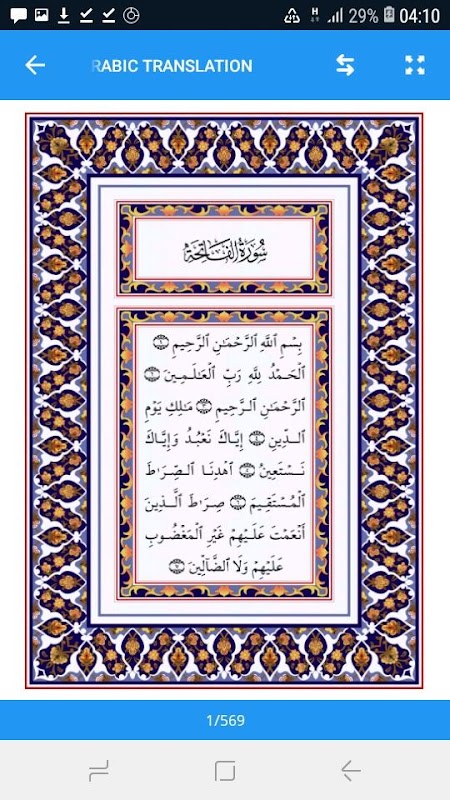 H 29% 04:10
RABIC TRANSLATION
سُورَةُ الْفَاتِحَةِ
بِسْمِ ٱللَّهِ ٱلرَّحْمَـٰنِ ٱلرَّحِيمِ ۝١
ٱلْحَمْدُ لِلَّهِ رَبِّ ٱلْعَـٰلَمِينَ ۝٢
ٱلرَّحْمَـٰنِ ٱلرَّحِيمِ ۝٣ مَـٰلِكِ يَوْمِ
ٱلدِّينِ ۝٤ إِيَّاكَ نَعْبُدُ وَإِيَّاكَ
نَسْتَعِينُ ۝٥ ٱهْدِنَا ٱلصِّرَٰطَ
ٱلْمُسْتَقِيمَ ۝٦ صِرَٰطَ ٱلَّذِينَ
أَنْعَمْتَ عَلَيْهِمْ غَيْرِ ٱلْمَغْضُوبِ
عَلَيْهِمْ وَلَا ٱلضَّآلِّينَ ۝٧
1/569